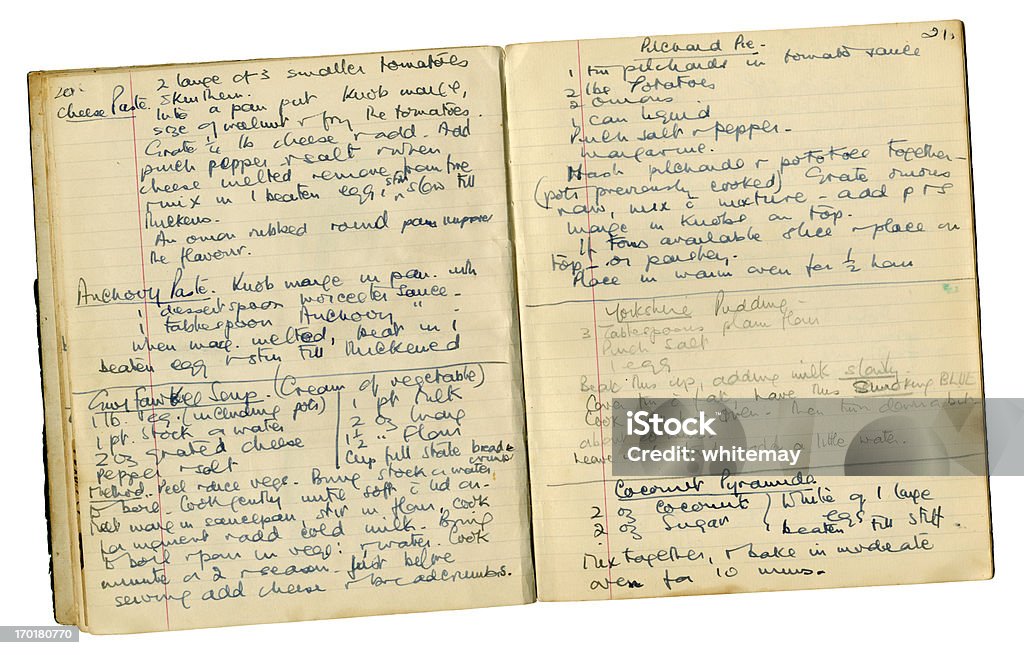 20.
2 large or 3 smaller tomatoes
Cheese Paste. Skin them.
Into a pan put knob marge,
size of walnut & fry the tomatoes.
Grate ¼ lb cheese & add. Add
pinch pepper & salt & when
cheese melted remove from fire
& mix in 1 beaten egg, stir slow till
thickens.
An onion rubbed round pan improves
the flavour.
Anchovy Paste. Knob marge in pan. with
1 dessertspoon worcester sauce.
1 tablespoon Anchovy "
When marg. melted, beat in 1
beaten egg & stir till thickened
Guy Fawkes Soup. (Cream of vegetable)
1 lb. veg. (including pots)
1 pt. stock or water
2 oz grated cheese
Pepper & salt
1 pt milk
2 oz marg
1½ " flour
Cup full stale breadcrumbs
Method. Peel & dice vegs. Bring stock or water
to boil. Cook gently until soft lid on.
Melt marg in saucepan, stir in flour, cook
for moment & add cold milk. Bring
to boil & pour in vegs: & water. Cook
minute or 2 & season. Just before
serving add cheese & breadcrumbs.
21.
Pilchard Pie.
1 tin pilchards in tomato sauce
2 lbs Potatoes
2 onions
1 can liquid
Pinch salt & pepper.
margarine.
Mash pilchards & potatoes together
(pots previously cooked) Grate onions
raw, mix mixture - add p & s
marge in knobs on top.
If toms available slice & place on
top - or parsley.
Place in warm oven for ½ hour
Yorkshire Pudding
3 Tablespoons plain flour
Pinch salt
1 egg
Beat this up, adding milk slowly.
Cover tin fat, have this smoking BLUE
Cook oven. Then turn down
about
Leave add a little water.
Coconut Pyramids
2 oz coconut
2 oz Sugar
White of 1 large
egg
beaten till stiff.
Mix together, & bake in moderate
oven for 10 mins.
iStock
Credit: whitemay
170180770